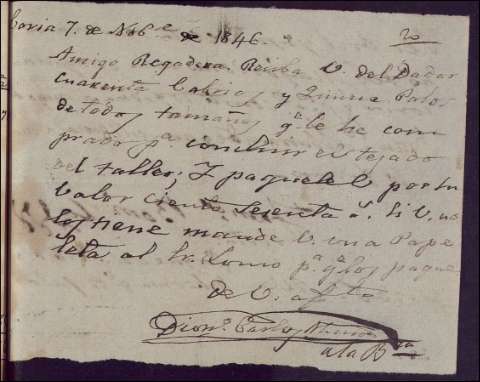 Coria 7. de Nobe de 1846.
20
Amigo Regadera. Reciba V. del Dador
cuarenta y Palos
de todos tamaños qe le he com
prado pa concluir el tejado
del taller; y paguele V por su
valor ciento sesenta rs. Si V. no
los tiene mande V. una Pape
leta al Sr. Lomo pa qe los pague
de V. afto
Dionо Carlos